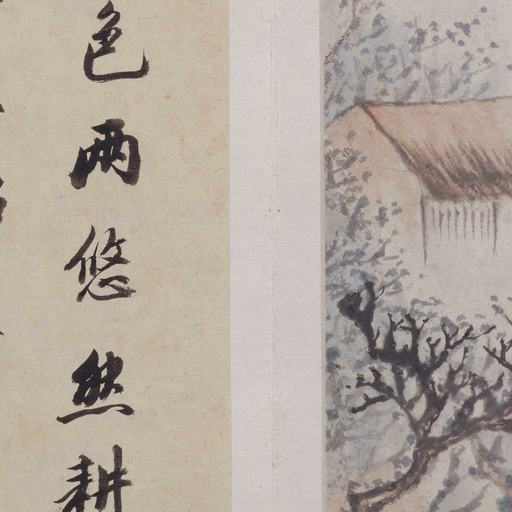 色两悠然耕